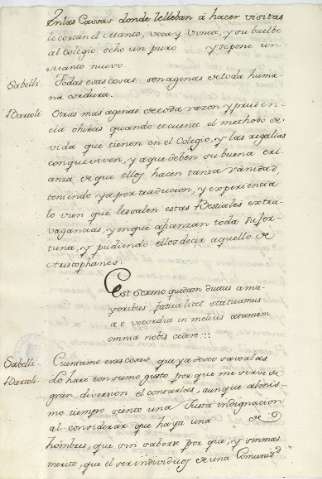 En las Casas donde le lleban á hacer visitas
le cortan el Manto, veca y vonete, y su buelbe
al Colegio echo un puro y se pone un
manto nuevo
Sabelli. Todas esas cosas son agenas de toda huma
na cordura.
Bartoli. Otras mas agenas de toda razon y pruden
cia ohiras quando te cuente el methodo de
vida que tienen en el Colegio, y las regalias
con que viven, y aque deben su buena cri
anza, de que ellos hacen tanta vanidad
teniendo ya por tradiccion, y experiencia
lo vien que les valen estas Bestiales extra
vagancias, y en que afianzan toda su for
tuna, y pudiendo ellos decir aquello de
Aristophanes.
Est sermo quidam ductus a ma
yoribus
ac vecordia in melius
omnia nobis cedere...
Sabelli. Cuentame esas cosas, que ya deseo saverlas
Bartoli. Lo haré con sumo gusto por que me sirve de
gran diversion el contarlas, aunque al mis
mo tiempo siento una Justa indignacion
al considerar que haya una de
hombres, que sin saberse por que, y sin mas
merito, que el ser individuos de una Comunid.^d